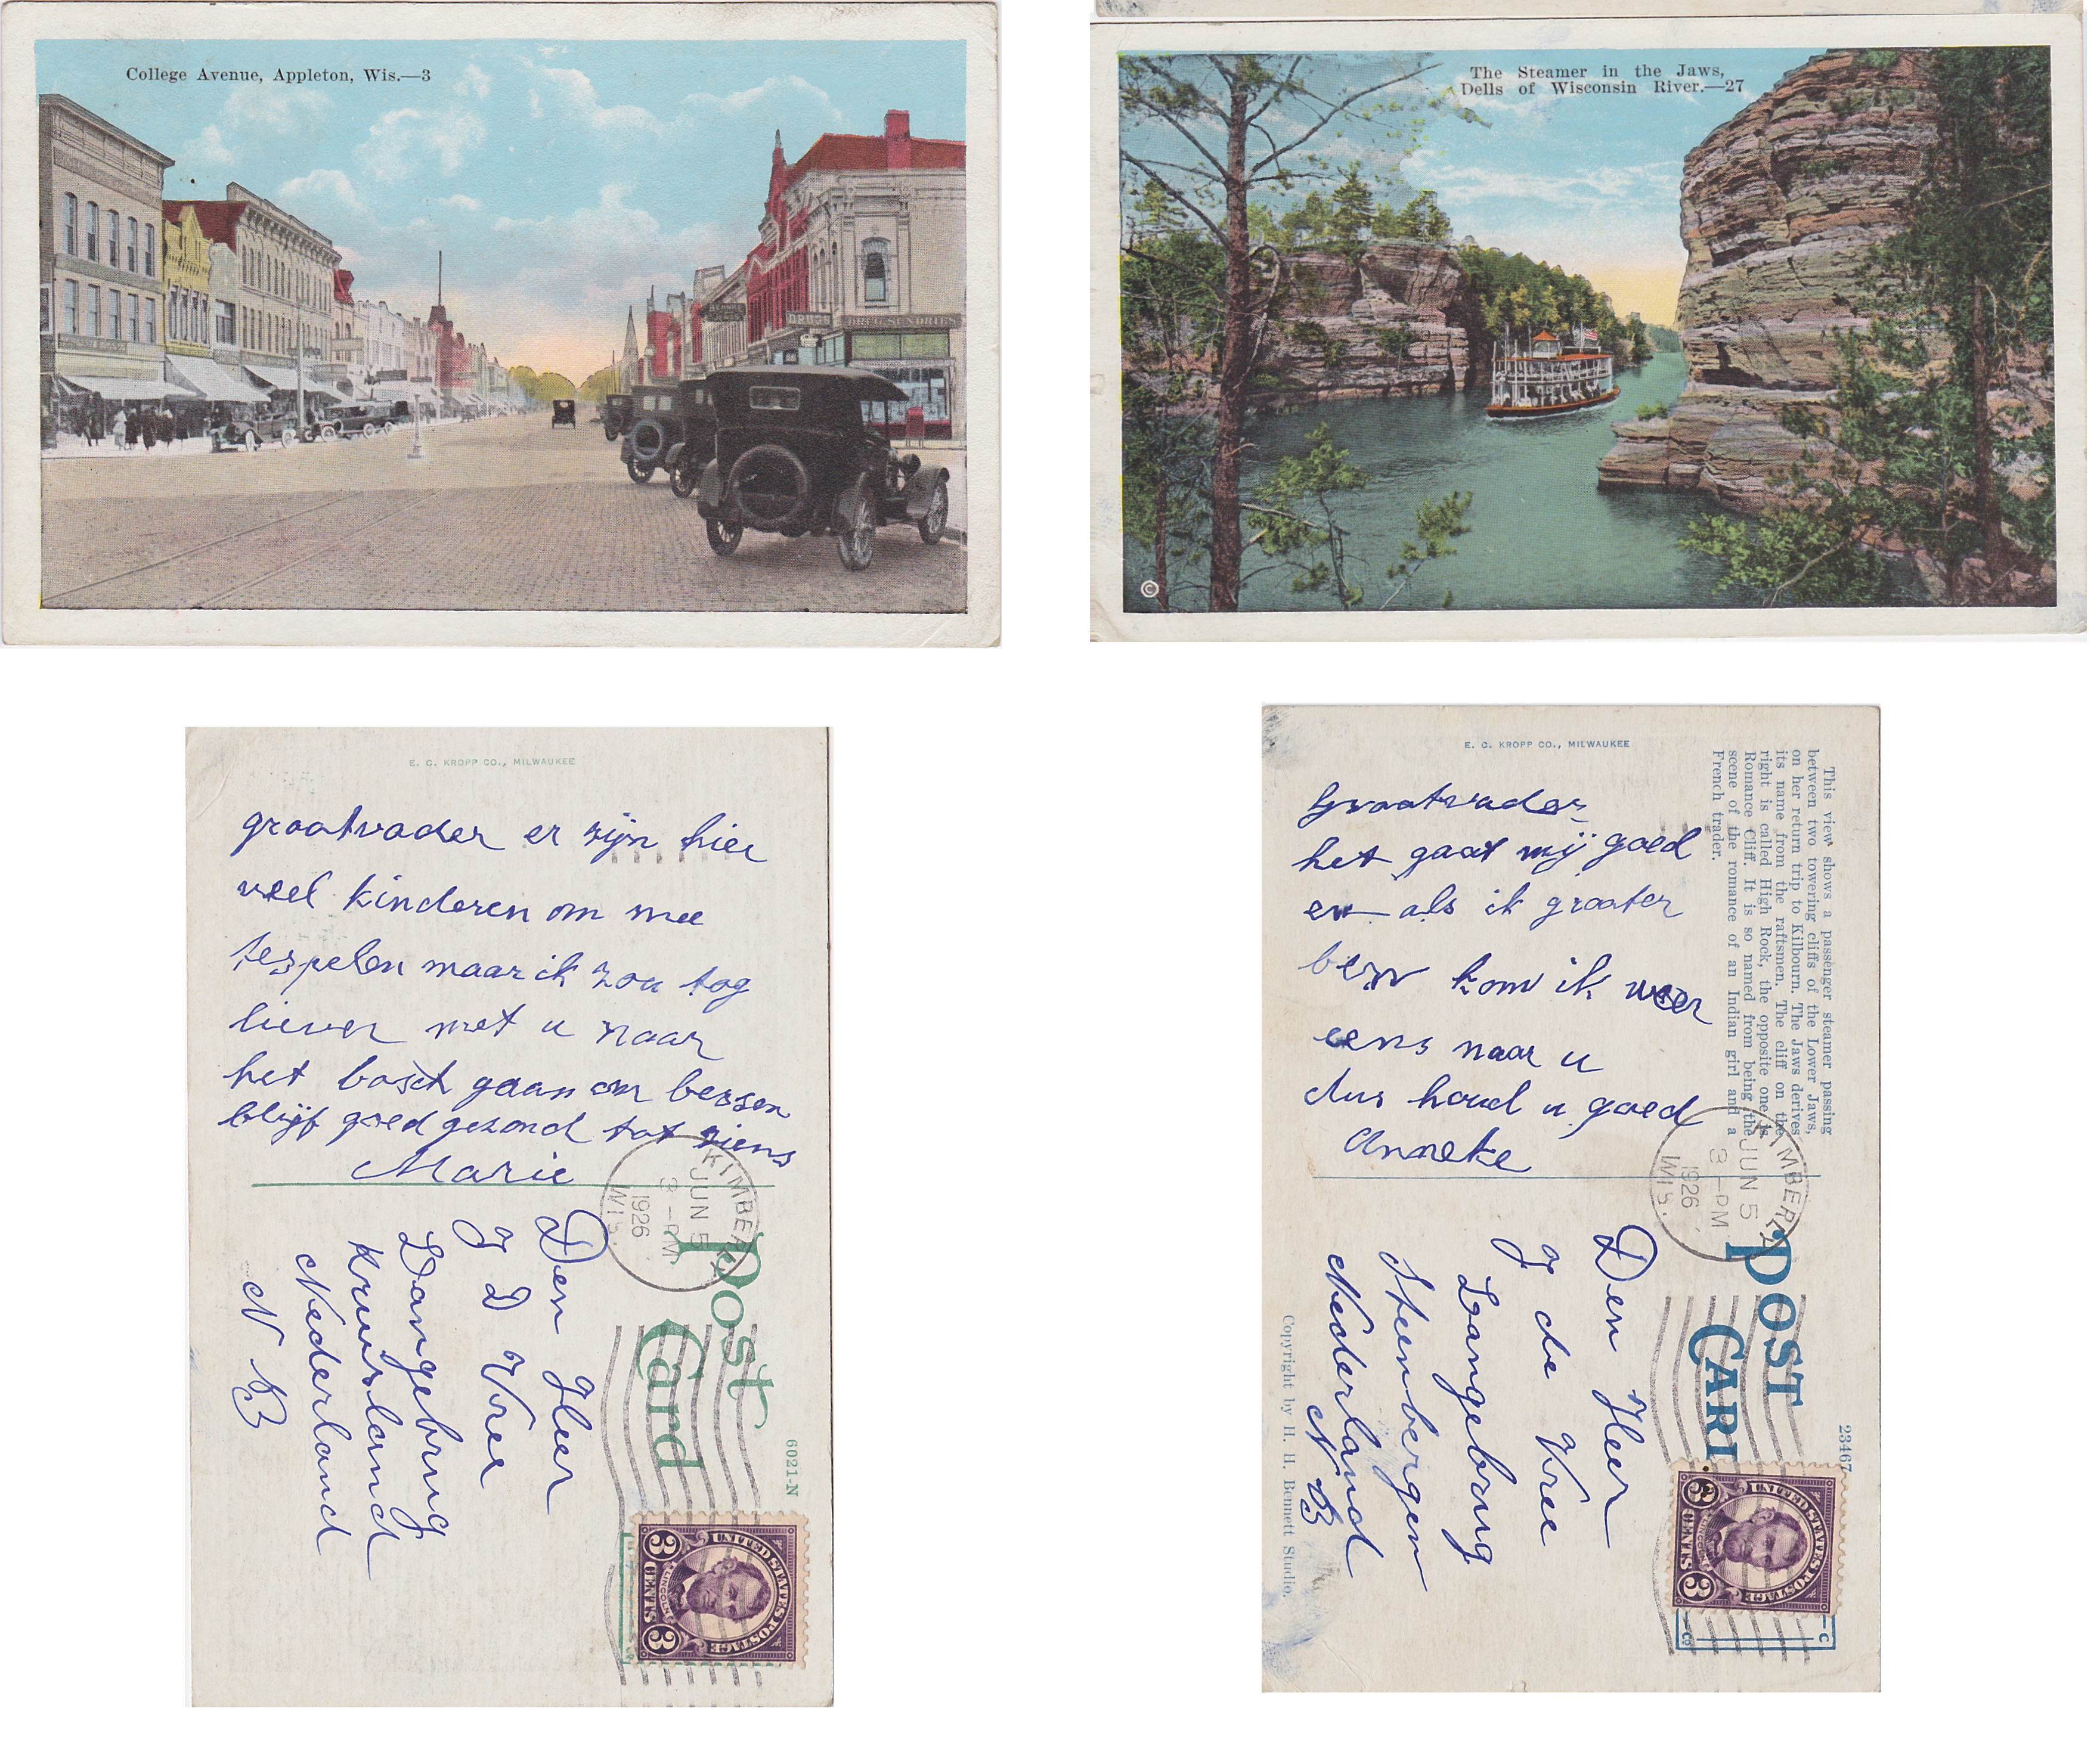 College Avenue, Appleton, Wis.—3
DRUGS
DRUG SUNDRIES
The Steamer in the Jaws,
Dells of Wisconsin River.—27
©
E. C. KROPP CO., MILWAUKEE
grootvader er zijn hier
veel kinderen om mee
tespelen maar ik zou tog
liever met u naar
het bosch gaan om bessen
blijf goed gezond tot ziens
Marie
KIMBERLY
JUN 5
3 -PM
1926
WIS.
Post
Card
6021-N
Den Heer
J D Vree
Langebrug
Kruisland
Nederland
N B
UNITED STATES POSTAGE
LINCOLN
3 CENTS 3
E. C. KROPP CO., MILWAUKEE
Grootvader,
het gaat mij goed
en als ik grooter
ben kom ik weer
eens naar u
dus houd u goed
Anneke
This view shows a passenger steamer passing
between two towering cliffs of the Lower Jaws,
on her return trip to Kilbourn. The Jaws derives
its name from the raftsmen. The cliff on the
right is called High Rock, the opposite one is
Romance Cliff. It is so named from being the
scene of the romance of an Indian girl and a
French trader.
KIMBERLY
JUN 5
3 -PM
1926
WIS.
POST
CARD
23467
Den Heer
J de Vree
Langebrug
Steenbergen
Nederland
N B
UNITED STATES POSTAGE
LINCOLN
3 CENTS 3
Copyright by H. H. Bennett Studio.